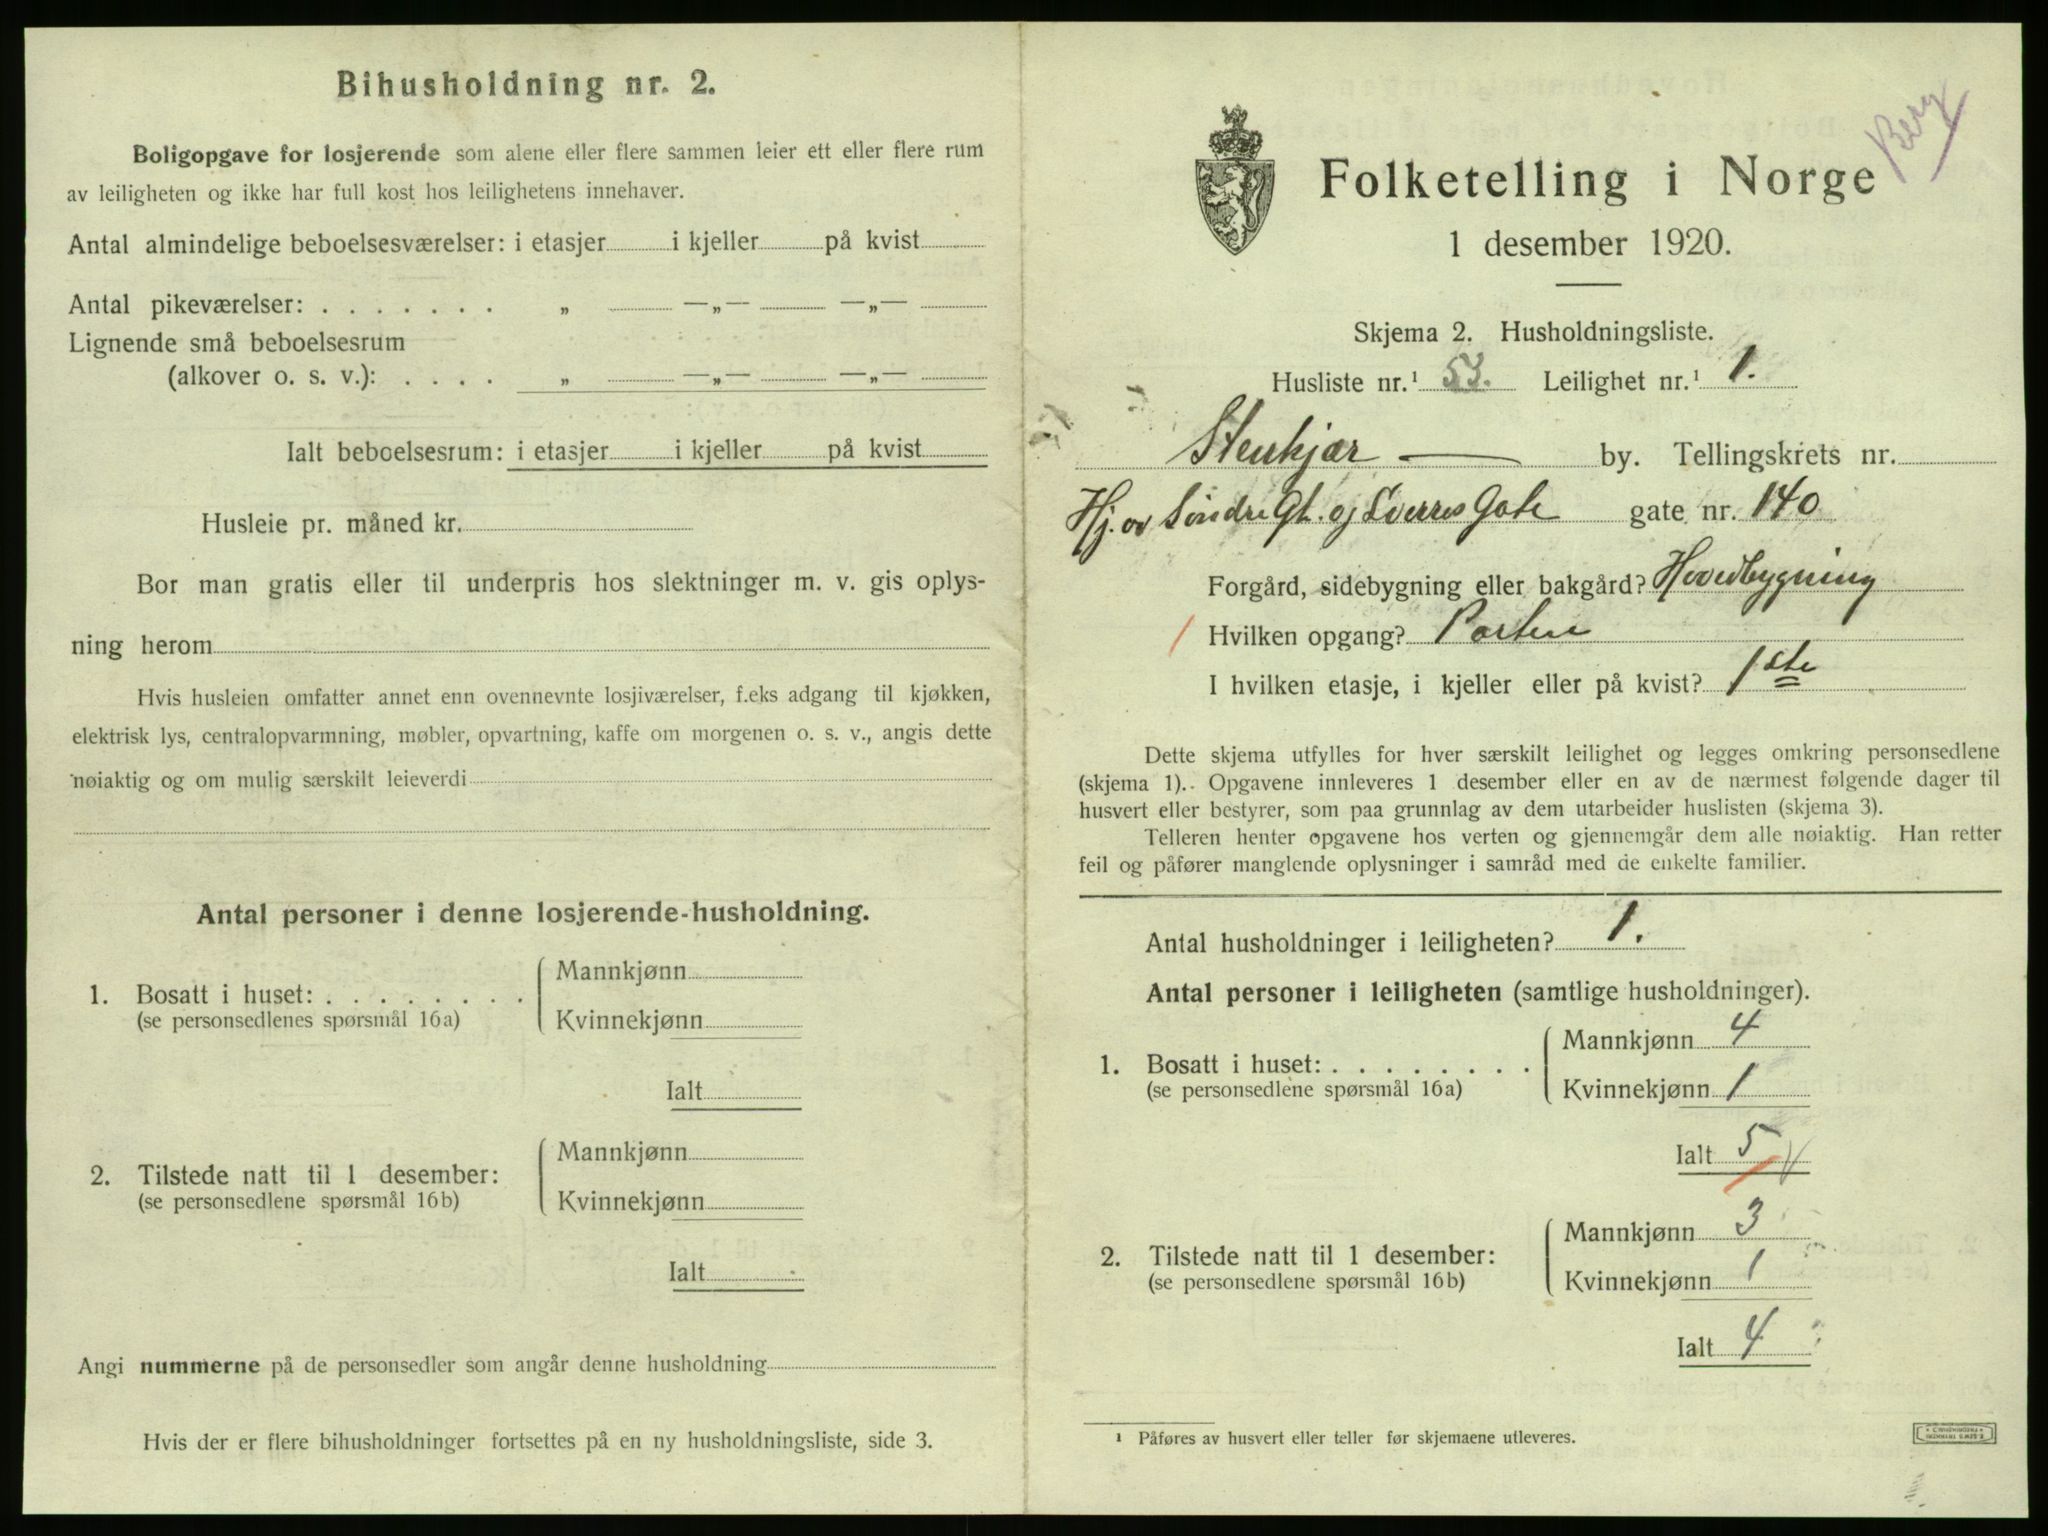 Bihusholdning nr. 2.
Boligopgave for losjerende som alene eller flere sammen leier ett eller flere rum
av leiligheten og ikke har full kost hos leilighetens innehaver.
Antal almindelige beboelsesværelser: i etasjer i kjeller på kvist
Antal pikeværelser: . . . . . . . „ —„— —„—
Lignende små beboelsesrum
(alkover o. s. v.): . . . . „ —„— —„—
Ialt beboelsesrum: i etasjer i kjeller på kvist
Husleie pr. måned kr.
Bor man gratis eller til underpris hos slektninger m. v. gis oplys-
ning herom
Hvis husleien omfatter annet enn ovennevnte losjiværelser, f.eks adgang til kjøkken,
elektrisk lys, centralopvarmning, møbler, opvartning, kaffe om morgenen o. s. v., angis dette
nøiaktig og om mulig særskilt leieverdi
Antal personer i denne losjerende-husholdning.
1. Bosatt i huset: . . . . . . . .
(se personsedlenes spørsmål 16a)
Mannkjønn
Kvinnekjønn
Ialt
2. Tilstede natt til 1 desember:
(se personsedlene spørsmål 16b)
Mannkjønn
Kvinnekjønn
Ialt
Angi nummerne på de personsedler som angår denne husholdning
Hvis der er flere bihusholdninger fortsettes på en ny husholdningsliste, side 3.
Berg
Folketelling i Norge
1 desember 1920.
Skjema 2. Husholdningsliste.
Husliste nr.¹ 53. Leilighet nr.¹ 1.
Stenkjær — by. Tellingskrets nr.
Hj. av Søndre Gt. og Sverres Gate gate nr. 140
Forgård, sidebygning eller bakgård? Hovedbygning
Hvilken opgang? Porten
I hvilken etasje, i kjeller eller på kvist? 1ste
Dette skjema utfylles for hver særskilt leilighet og legges omkring personsedlene
(skjema 1). Opgavene innleveres 1 desember eller en av de nærmest følgende dager til
husvert eller bestyrer, som paa grunnlag av dem utarbeider huslisten (skjema 3).
Telleren henter opgavene hos verten og gjennemgår dem alle nøiaktig. Han retter
feil og påfører manglende oplysninger i samråd med de enkelte familier.
Antal husholdninger i leiligheten? 1.
Antal personer i leiligheten (samtlige husholdninger).
1. Bosatt i huset: . . . . . . . .
(se personsedlene spørsmål 16a)
Mannkjønn 4
Kvinnekjønn 1
Ialt 5
2. Tilstede natt til 1 desember:
(se personsedlene spørsmål 16b)
Mannkjønn 3
Kvinnekjønn 1
Ialt 4
¹ Påføres av husvert eller teller før skjemaene utleveres.